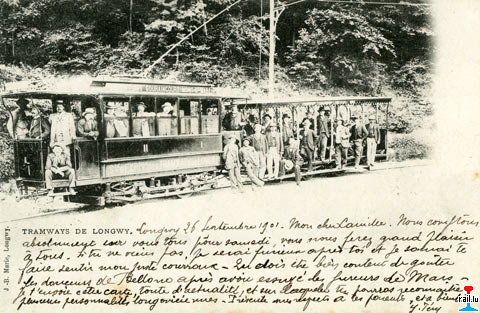 TRAMWAYS DE LONGWY.
Longwy 26 Septembre 1901. Mon cher Camille. Nous comptons
absolument voir vous tous pour samedi, vous nous ferez grand plaisir
à tous. Si tu ne viens pas, je serai furieux après toi et je saurai te
faire sentir mon juste courroux. Tu dois être bien content de goûter
les douceurs de Bellone après avoir essuyé les fureurs de Mars.
Je t'envoie cette carte toute d'actualité, et sur laquelle tu pourras reconnaître
plusieurs personnalités longoviciennes. Présente mes respects à tes parents, et à bientôt
J.-B. Marie, Longwy.
rail.lu